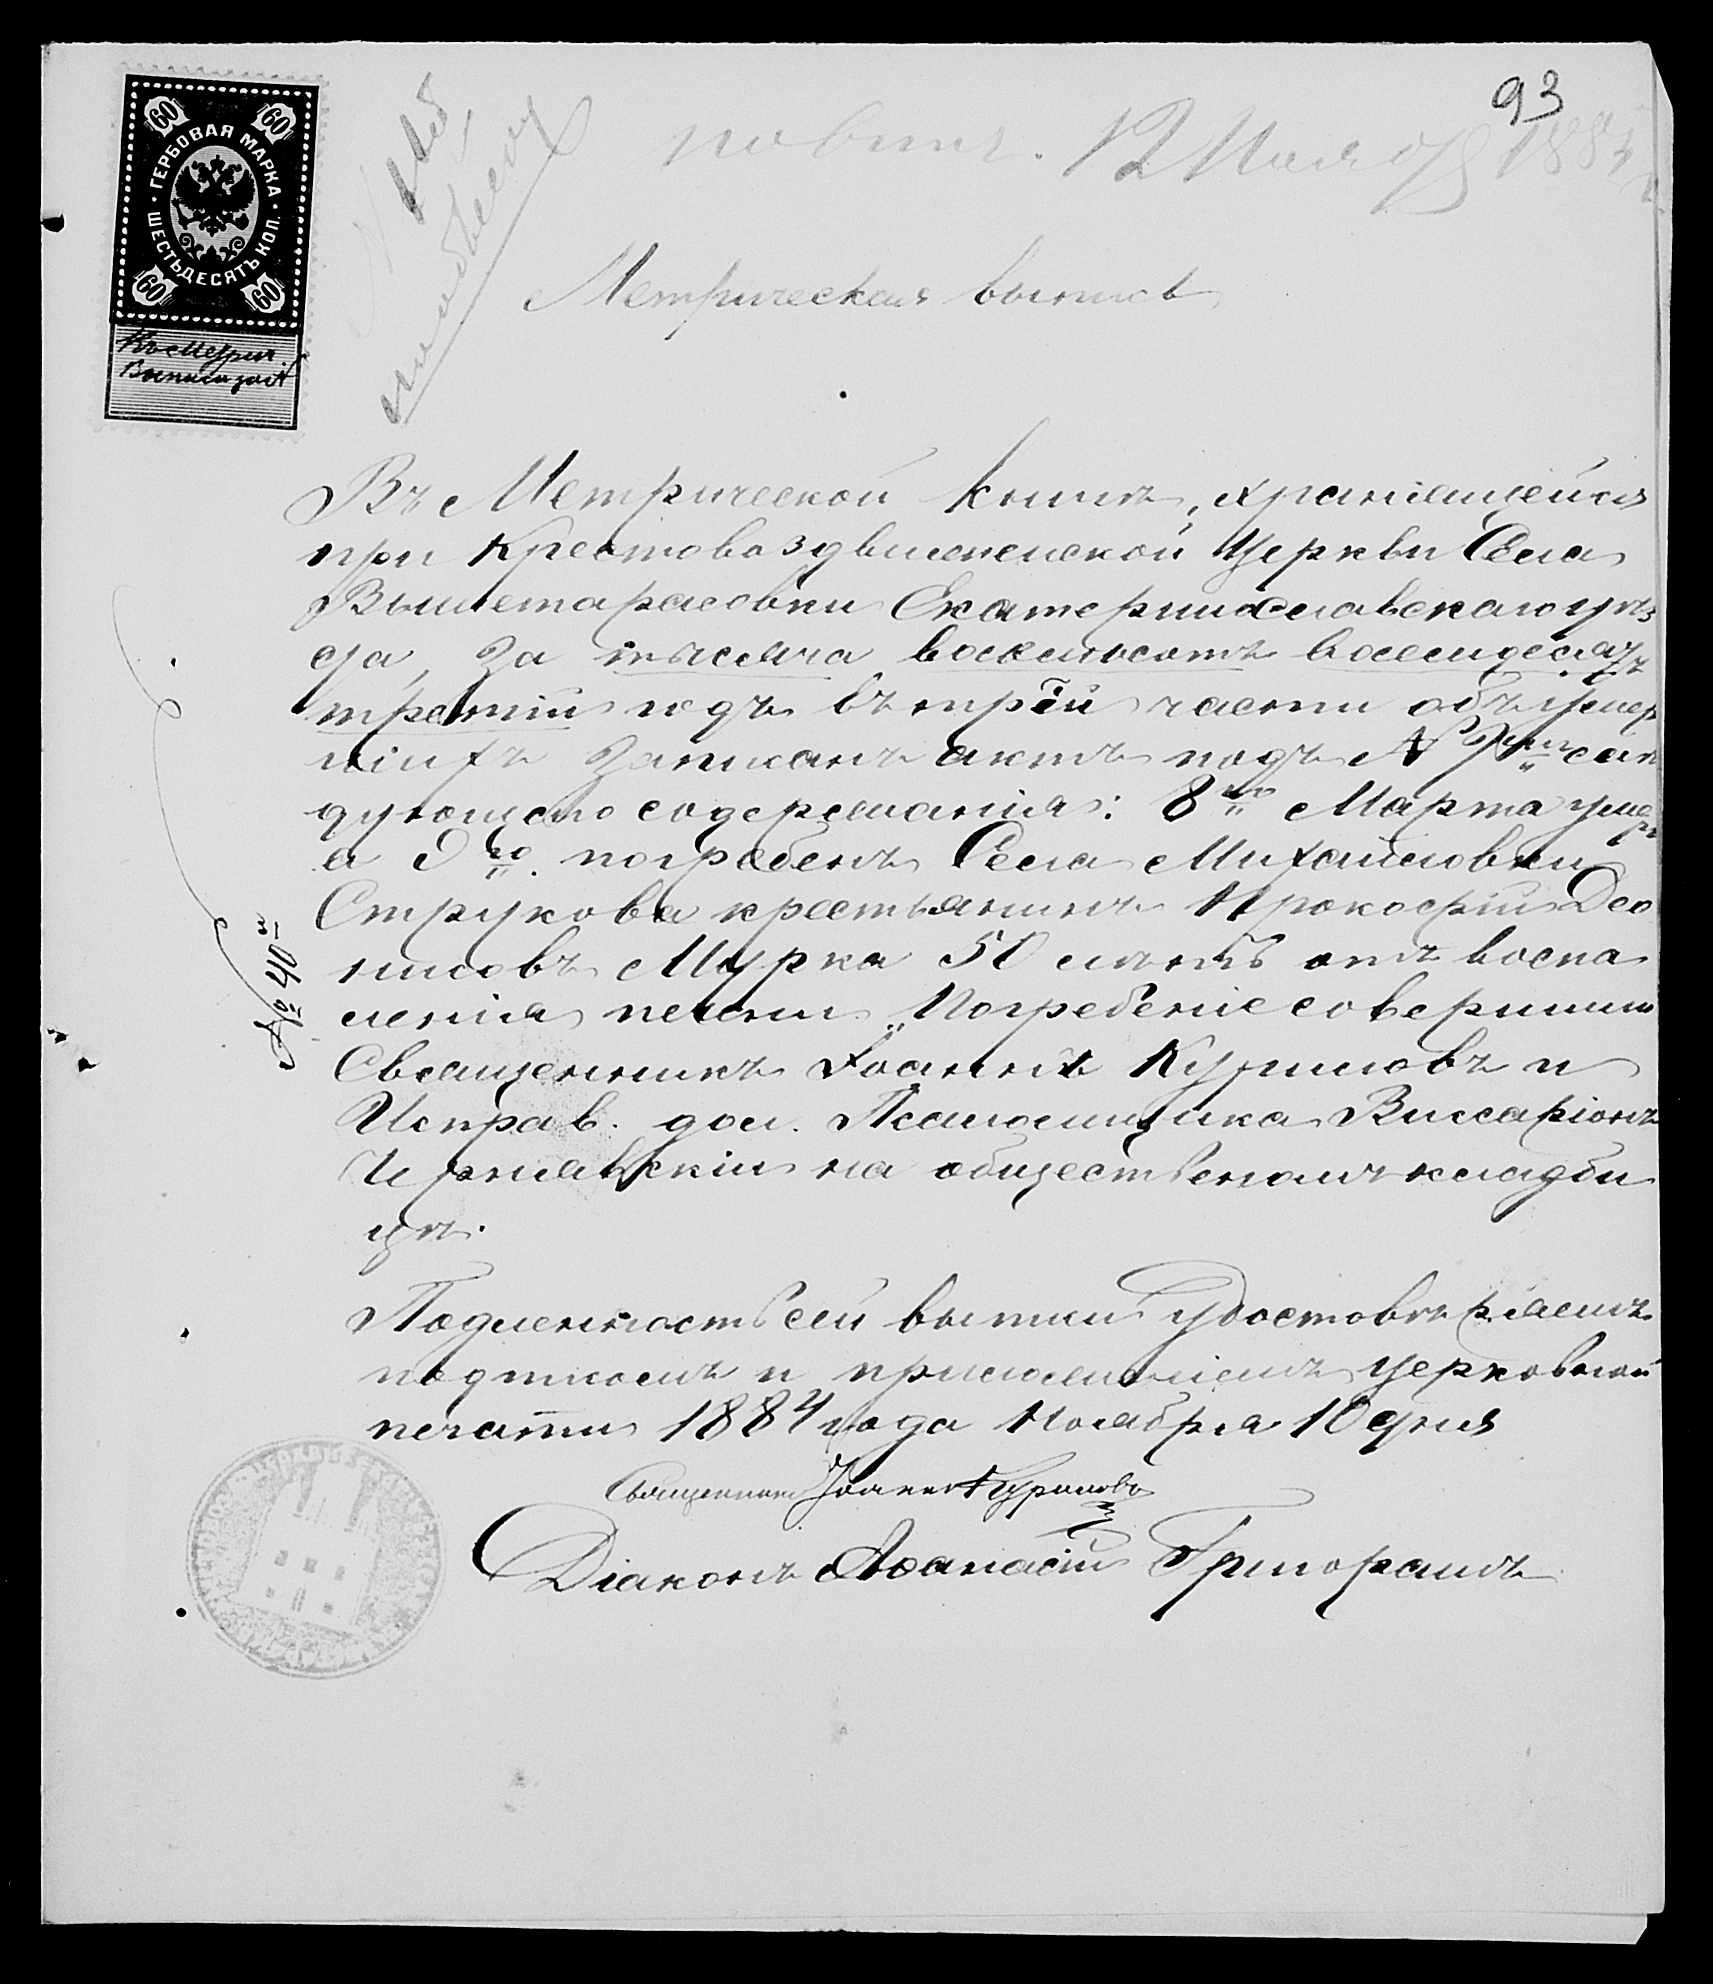 93
12 Ноября 1884
60 60
ГЕРБОВАЯ МАРКА
ШЕСТЬДЕСЯТЪ КОП.
60 60
Къ Метрич.
Выписи за №
Метрическая выпись
Въ Метрической книгѣ, хранящейся
при Крестовоздвиженской Церкви Села
Вышетарасовки Екатеринославскаго уѣз
да, за тысяча восемьсотъ восемьдесятъ
третій годъ въ трей части объ умер
шихъ записанъ актъ подъ № слѣ
дующего содержанія: 8го Марта умеръ
а 9го погребенъ Села Михайловки
Струкова крестьянинъ Прокофій Део
нисовъ Мурка 50 лѣтъ отъ воспа
ленія печени. Погребеніе совершили
Священникъ Іоаннъ Куриловъ и
Исправ. дол. Псаломщика Виссаріонъ
Чернявскій на общественомъ кладби
щѣ.
№ 40й
Подленность сей выписи удостовѣряемъ
подписомъ и приложеніемъ церковной
печати 1884 года Ноября 10 дня
Священникъ Іоаннъ Куриловъ
Діаконъ Аѳанасій Григорашъ